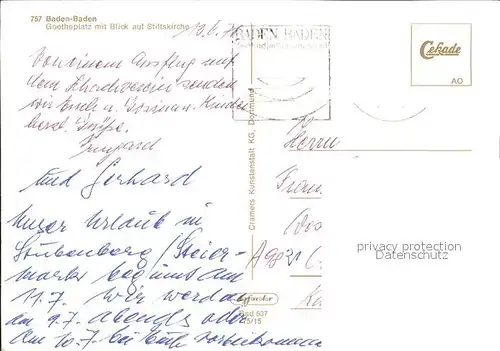 757 Baden-Baden
Goetheplatz mit Blick auf Stiftskirche
13.6.
BADEN BADEN
Cekade
AO
Von einem Ausflug mit
dem Schachverein senden
wir Euch u. Kinder
herzl. Grüße.
Irmgard
und Gerhard
Unser Urlaub in
Stubenberg / Steier-
mark beginnt am
11.7. Wir werden
am 9.7. abends oder
am 10.7 bei Euch vorbeikommen
Cramers Kunstanstalt KG, Dortmund
Bad 537
5/15
Herrn
privacy protection
Datenschutz